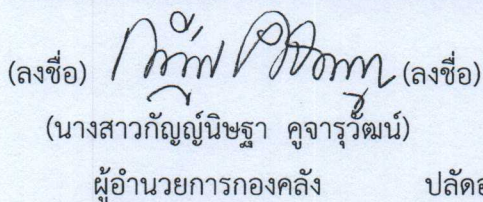 (ลงชื่อ) (ลงชื่อ)
(นางสาวกัญญ์นิษฐา คูจารุวัฒน์)
ผู้อำนวยการกองคลัง ปลัด